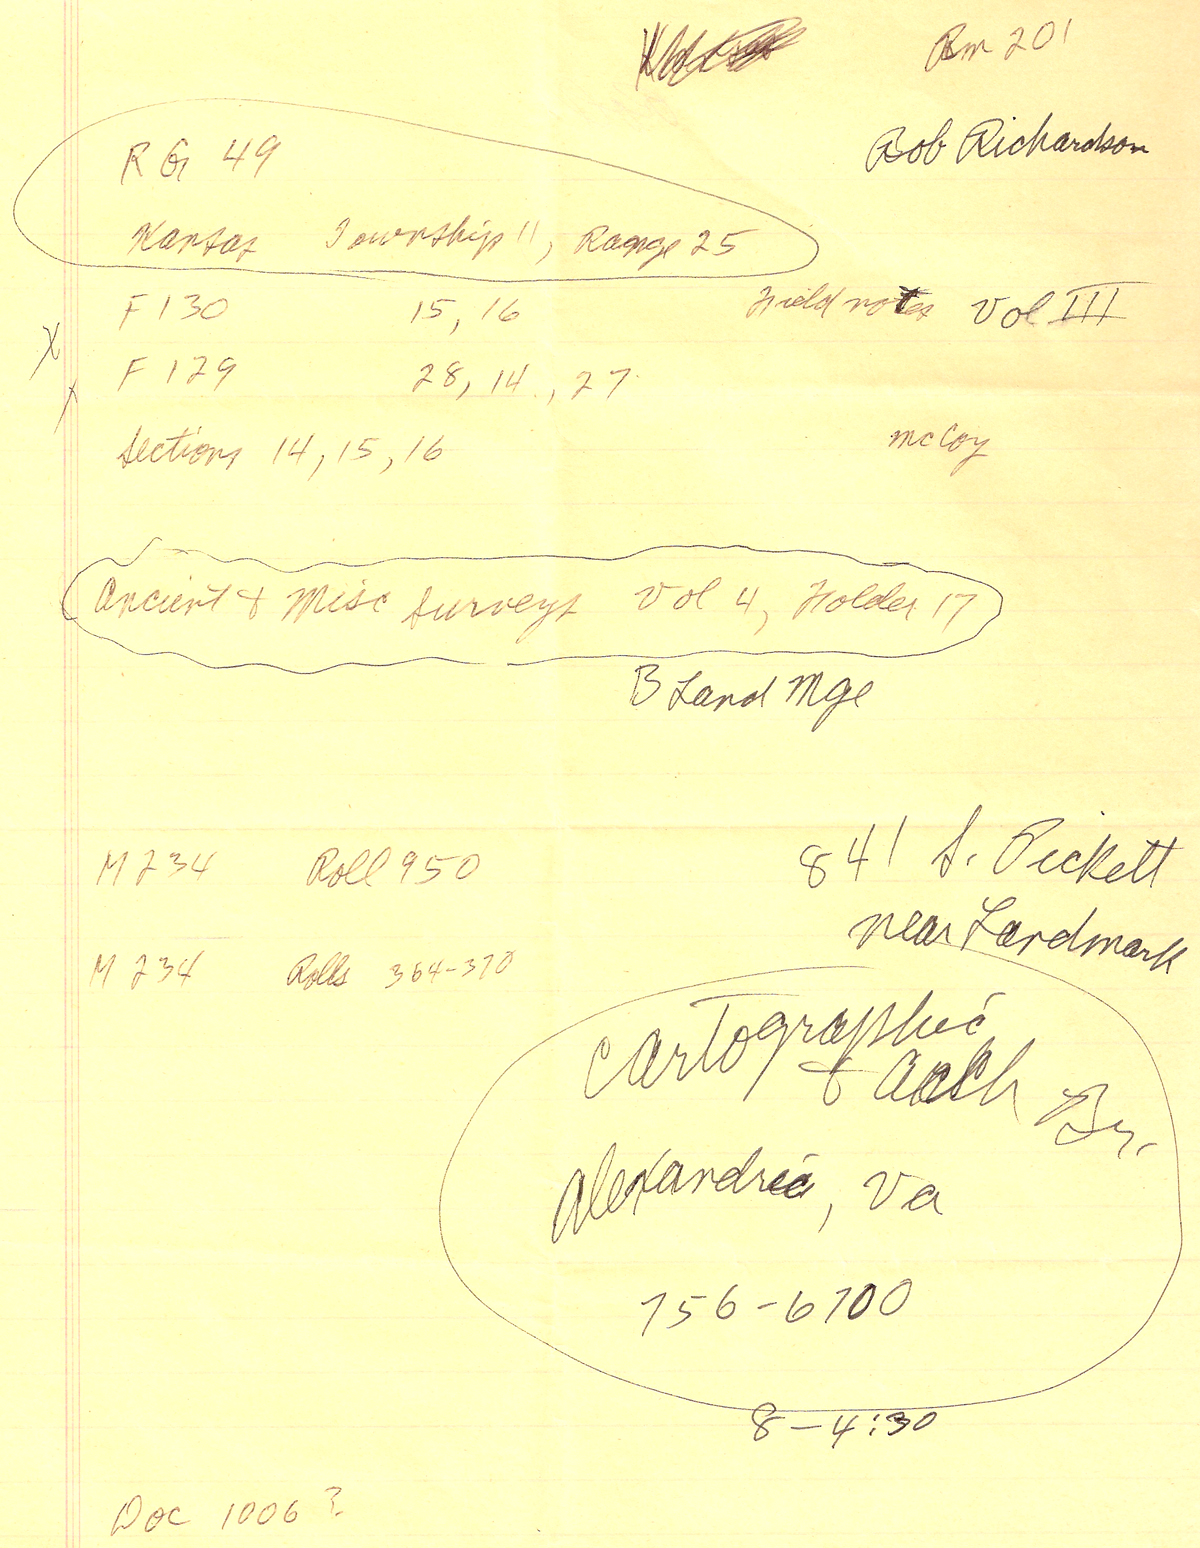 Rm 201
Bob Richardson
RG 49
Kansas Township 11, Range 25
F 130 15, 16 Field notes Vol III
X
F 129 28, 14, 27
X
Sections 14, 15, 16 McCoy
Ancient & Misc Surveys Vol 4, Folder 17
B Land Mge
841 S. Pickett
M 234 Roll 950
near Landmark
M 234 Rolls 364-370
Cartographic
& Arch Br.
Alexandria, Va
756-6700
8-4:30
Doc 1006?